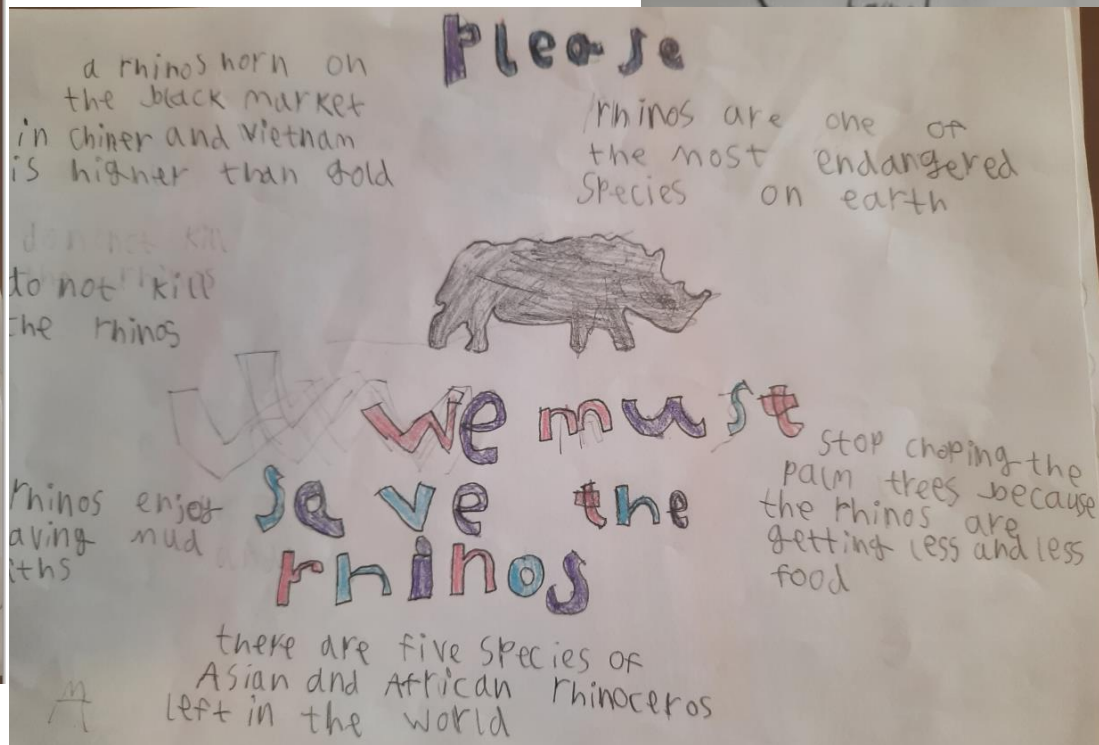 Please
a rhinos horn on
the black market
in chiner and vietnam
is higher than gold
rhinos are one of
the most endangered
species on earth
to not kill
the rhinos
we must
save the
rhinos
rhinos enjoy
aving mud
iths
stop choping the
palm trees because
the rhinos are
getting less and less
food
there are five species of
Asian and African rhinoceros
left in the world